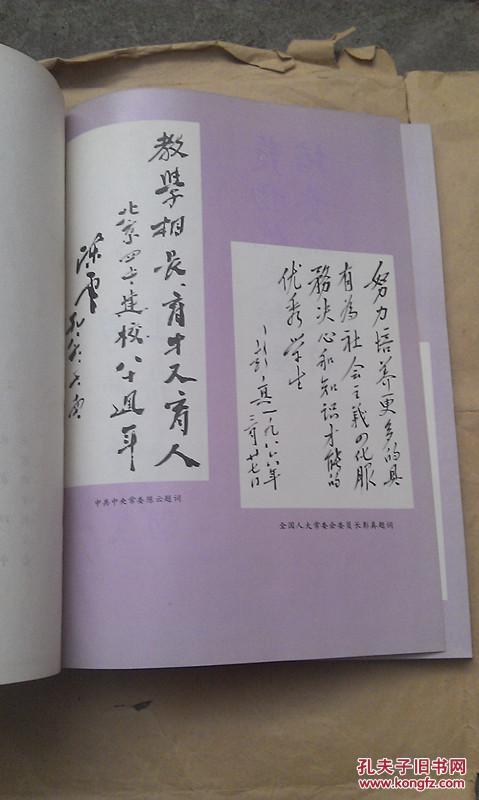 教学相长、育才又育人
北京四中建校八十周年
陈云
中共中央常委陈云题词
努力培养更多的具
有为社会主义四化服
务决心和知识才能的
优秀学生
彭真 一九八六年
三月廿七日
全国人大常委会委员长彭真题词
孔夫子旧书网
www.kongfz.com